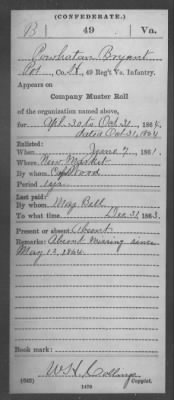 (CONFEDERATE.)
B 49 Va.
Powhatan Bryant
Pvt, Co. H, 49 Reg't Va. Infantry.
Appears on
Company Muster Roll
of the organization named above,
for Apl 30 to Oct 31, 1864.
dated Oct 31, 1864
Enlisted:
When June 7, 1861.
Where New Market
By whom Capt Wood
Period 1 year
Last paid:
By whom Maj. Bell
To what time Dec 31, 1863.
Present or absent Absent
Remarks: Absent missing since
May 12, 1864.
Book mark:
W. H. Collings
(642) 1470 Copyist.